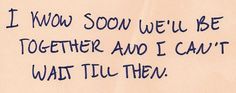 I KNOW SOON WE'LL BE
TOGETHER AND I CAN'T
WAIT TILL THEN.